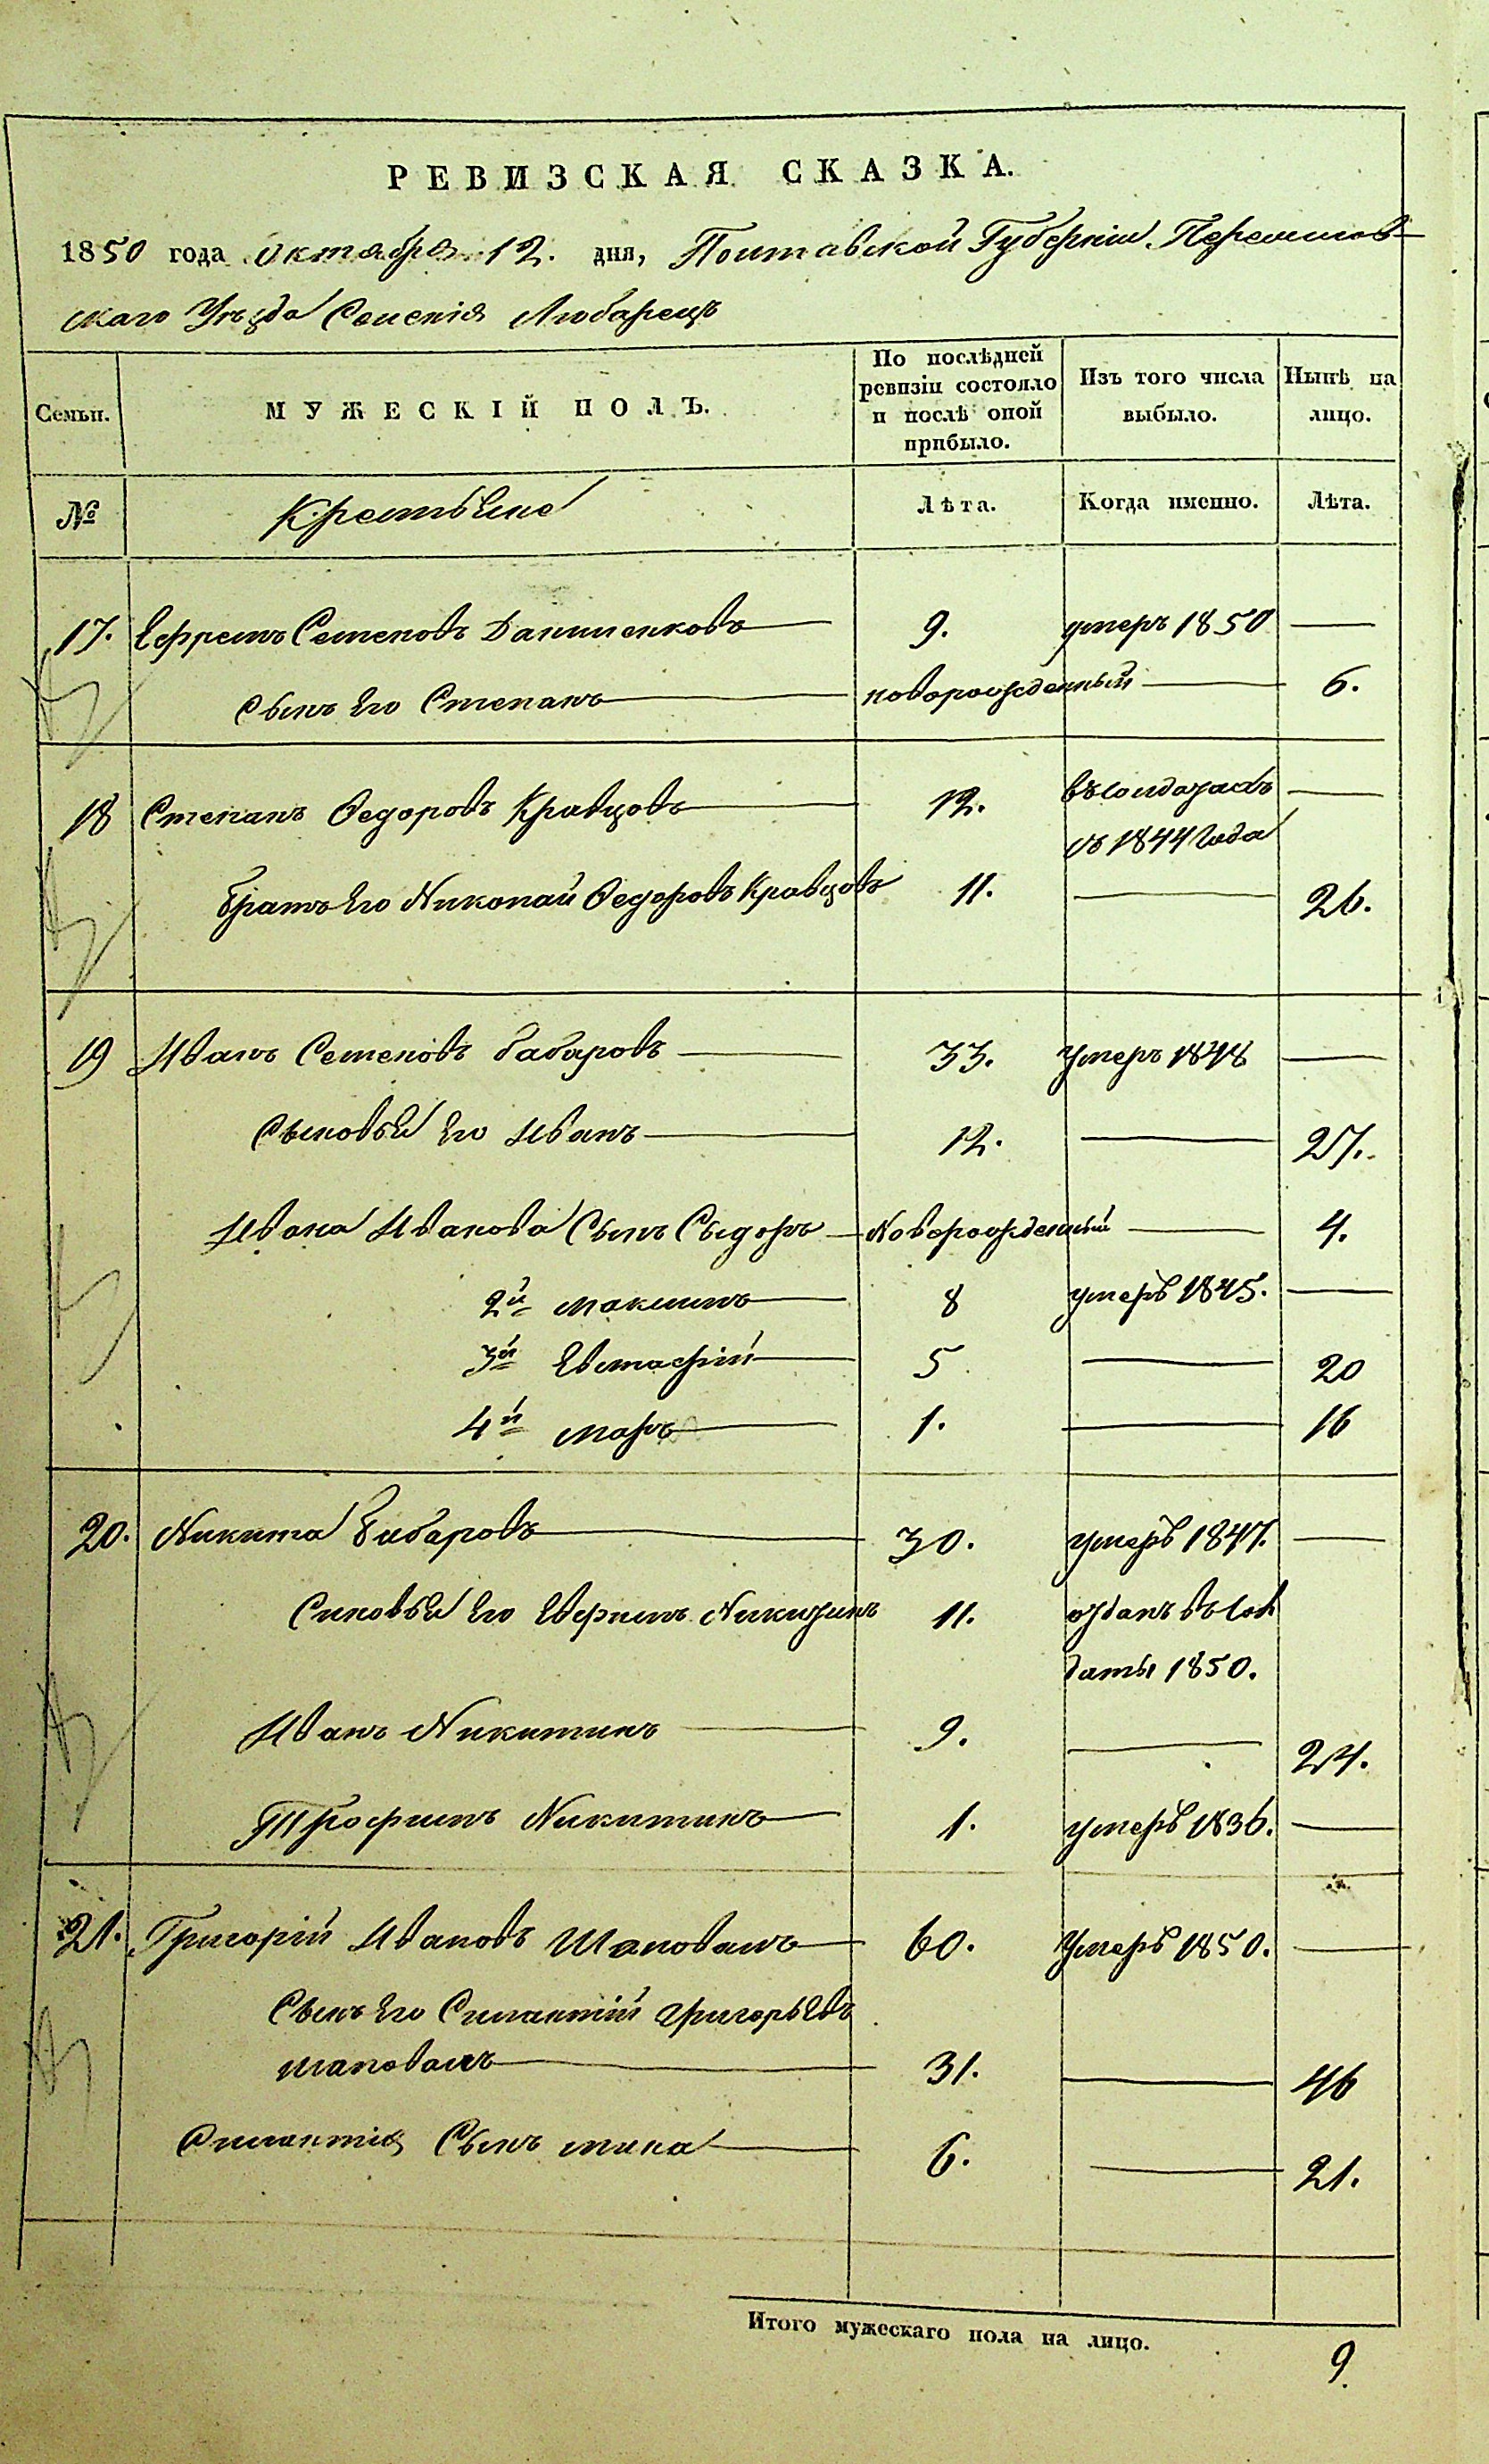 РЕВИЗСКАЯ СКАЗКА.
1850 года октября 12. дня, Полтавской Губерніи Переяслов-
скаго Уѣзда Селенія Любарецъ
Семьи. МУЖЕСКІЙ ПОЛЪ. По послѣдней ревизіи состояло и послѣ оной прибыло. Изъ того числа выбыло. Нынѣ на лицо.
№ Крестьяне Лѣта. Когда именно. Лѣта.
17. Ефремъ Семеновъ Данииленковъ 9. умеръ 1850 —
Сынъ Его Степанъ новорожденный — 6.
18 Степанъ Ѳедоровъ Кравцовъ 12. въ солдатахъ —
съ 1844 Года
братъ Его Николай Ѳедоровъ Кравцовъ 11. — 26.
19 Иванъ Семеновъ бабаровъ 33. умеръ 1848 —
Сыновья Его Иванъ 12. — 27.
Ивана Иванова Сынъ Сыдоръ Новорожденный — 4.
2й Максимъ 8 умеръ 1845. —
3й Евстафій 5 — 20
4й 1. — 16
20. Никита бабаровъ 30. умеръ 1847. —
Синовья Его Никитинъ 11. отданъ въ сол
даты 1850.
Иванъ Никитинъ 9. — 24.
Трофимъ Никитинъ 1. умеръ 1836. —
21. Григорій Ивановъ Шаповалъ 60. Умеръ 1850. —
Сынъ Его Силантій Григорьевъ
шаповалъ 31. — 46
Силантія Сынъ мина 6. — 21.
Итого мужескаго пола на лицо. 9